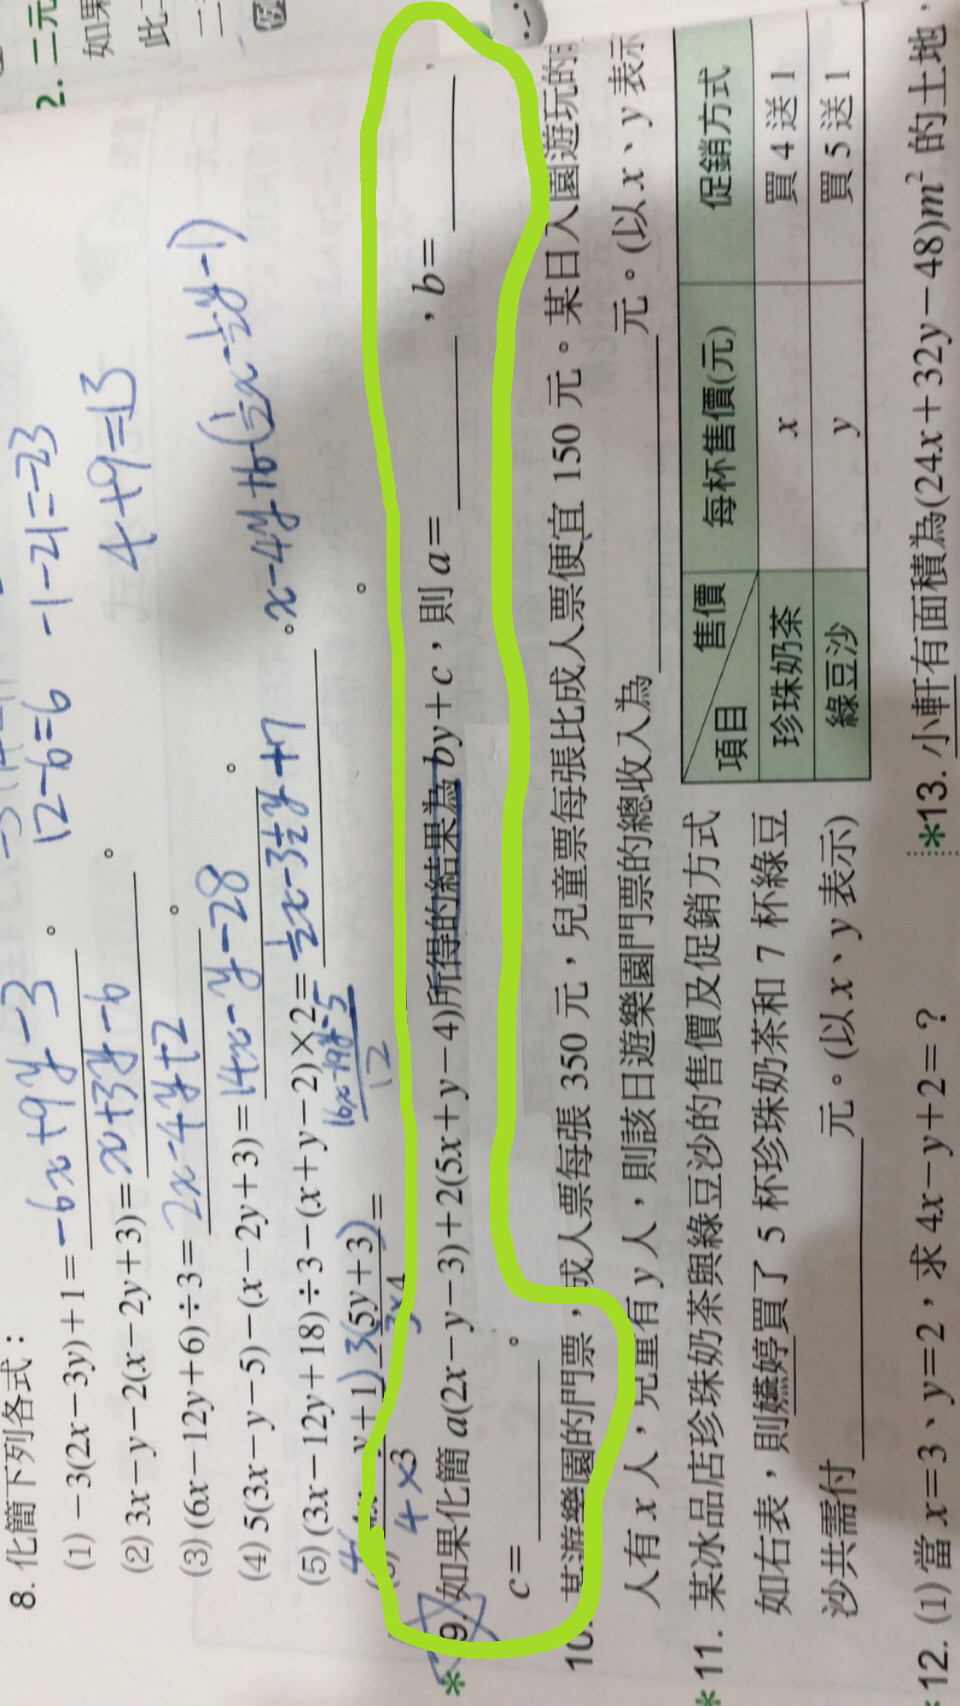 2. 二元
如果
此
二
8. 化簡下列各式：
(1) −3(2x−3y)+1= −6x+9y−3 。 12−6=6 −1−21=−23
(2) 3x−y−2(x−2y+3)= x+3y−6 。 4+9=13
(3) (6x−12y+6)÷3= 2x−4y+2 。
(4) 5(3x−y−5)−(x−2y+3)= 14x−y−28 。
(5) (3x−12y+18)÷3−(x+y−2)×2= 。x−4y+6
3(5y+3) =
4×3 3×4
12
*9. 如果化簡 a(2x−y−3)+2(5x+y−4)所得的結果為 by+c，則 a= ，b= ，
c= 。
10. 某遊樂園的門票，成人票每張 350 元，兒童票每張比成人票便宜 150 元。某日入園遊玩的
人有 x 人，兒童有 y 人，則該日遊樂園門票的總收入為 元。(以 x、y 表示
*11. 某冰品店珍珠奶茶與綠豆沙的售價及促銷方式
如右表，則嬿婷買了 5 杯珍珠奶茶和 7 杯綠豆
沙共需付 元。(以 x、y 表示)
售價 項目 每杯售價(元) 促銷方式
珍珠奶茶 x 買 4 送 1
綠豆沙 y 買 5 送 1
12. (1) 當 x=3、y=2，求 4x−y+2=？
*13. 小軒有面積為(24x+32y−48)m² 的土地，